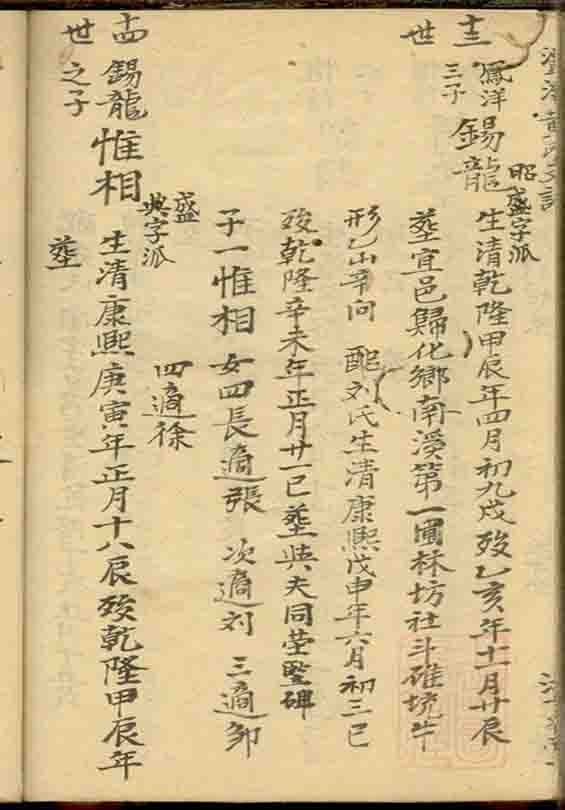 十三世
鳳洋三子
錫龍
昭盛字派
生清乾隆甲辰年四月初九戌歿乙亥年十一月廿辰
塟宜邑歸化鄉南溪第一圖林坊社斗碓垅牛
形乙山辛向 配刘氏生清康熙戊申年六月初三巳
歿乾隆辛未年正月廿一巳塟與夫同塋豎碑
子一惟相 女四長適張 次適刘 三適邹
四適徐
十四世
錫龍之子
惟相
盛典字派
生清康熙庚寅年正月十八辰歿乾隆甲辰年
塟